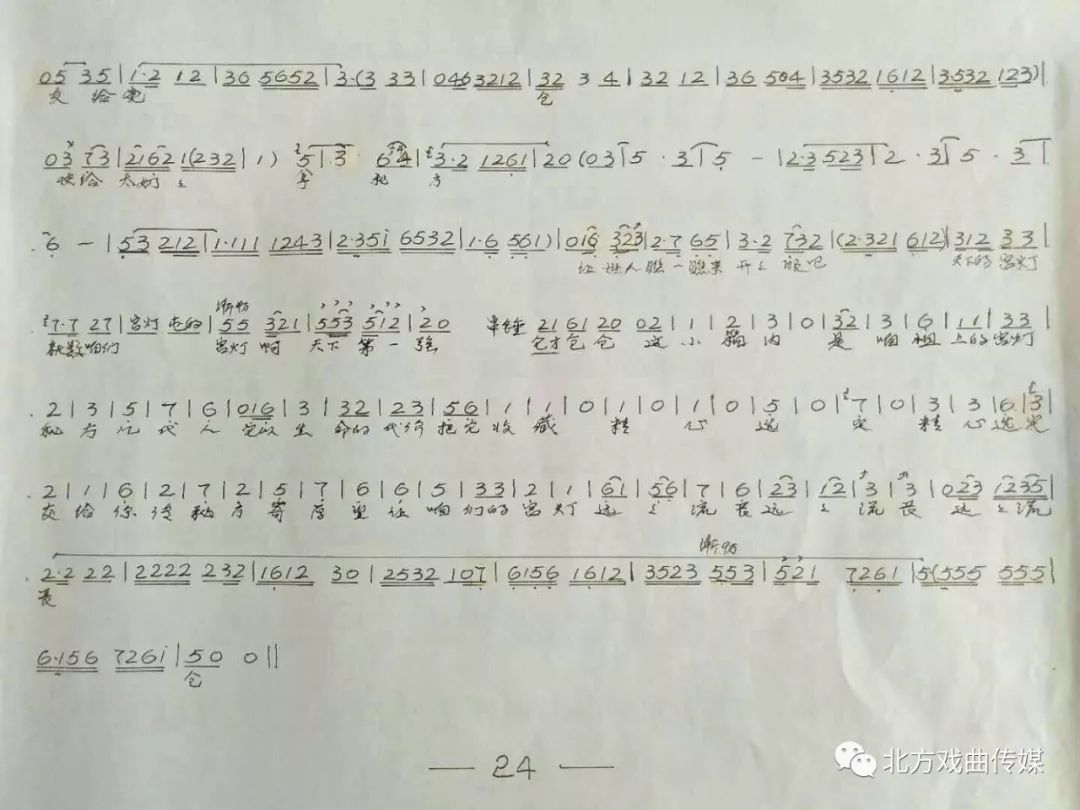 05 35 | 1·2 12 | 36 5652 | 3·(3 33 | 0463212 | 32 3 4 | 32 12 | 36 504 | 3532 1612 | 3532 123) |
交 给 党 仓
03 73 | 2162 1(232 | 1) 5 | 3· 64 | 3·2 1261 | 20 (03 | 5 · 3 | 5 − | 2·3523 | 2 · 3 | 5 · 3 |
快给 大奶 方
6 − | 53 212 | 1·111 1243 | 2·35i 6532 | 1·6 561) | 016 323 | 2·7 65 | 3·2 732 | (2·321 612) | 312 33 |
让世人瞧一瞧来开 眼吧 天下的宫灯
7·7 27 | 宫灯 | 55 321 | 553 512 | 20 串锤 21 61 20 02 | 1 | 2 | 3 | 0 | 32 | 3 | 6 | 11 | 33 |
渐慢
就数咱们 宫灯啊 天下第一强 仓才仓仓 这小箱内 是咱祖上的宫灯
2 | 3 | 5 | 7 | 6 | 016 | 3 | 32 | 23 | 56 | 1 | 1 | 0 | 1 | 0 | 1 | 0 | 5 | 0 | 7 | 0 | 3 | 3 | 6 | 3 |
秘方几代人 生命的代价把它收藏 精 心 选 定 精心选定
2 | 1 | 6 | 2 | 7 | 2 | 5 | 7 | 6 | 6 | 5 | 33 | 2 | 1 | 61 | 56 | 7 | 6 | 23 | 12 | 3 | 3 | 023 | 1235 |
交给你传秘方寄厚望让咱们的宫灯远 流长远 流长远 流
渐慢
2·2 22 | 2222 232 | 1612 30 | 2532 107 | 6156 1612 | 3523 553 | 521 7261 | 5(555 555 |
长
6·156 726i | 50 0 ||
仓
— 24 —
北方戏曲传媒